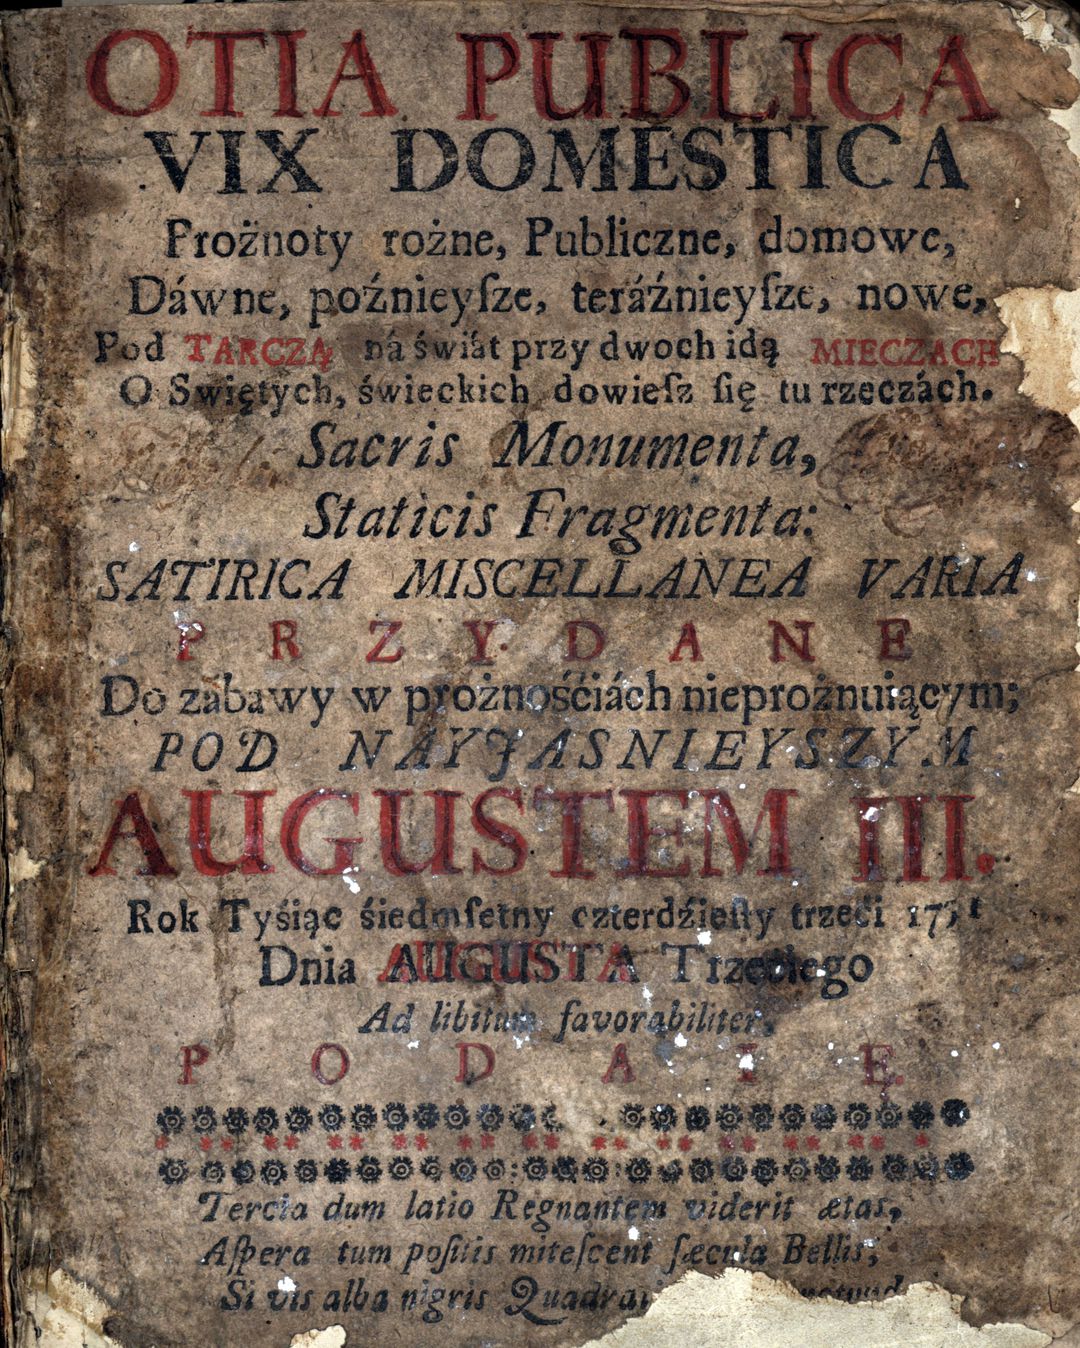 OTIA PUBLICA
VIX DOMESTICA
Prożnoty rożne, Publiczne, domowe,
Dáwne, poźnieyſze, teráźnieyſze, nowe,
Pod TARCZĄ ná świát przy dwoch idą MIECZACH
O Swiętych, świeckich dowieſz ſię tu rzeczách.
Sacris Monumenta,
Staticis Fragmenta:
SATIRICA MISCELLANEA VARIA
PRZYDANE
Do zábawy w prożnośćiách nieprożnuiącym;
POD NAYJASNIEYSZYM
AUGUSTEM III.
Rok Tyśiąc śiedmſetny czterdźieſty trzeći
Dnia AUGUSTA Trzećiego
Ad libitum favorabiliter,
PODAIE.
Tercia dum latio Regnantem viderit ætas,
Aſpera tum poſitis miteſcent ſæcula Bellis;
Si vis alba nigris